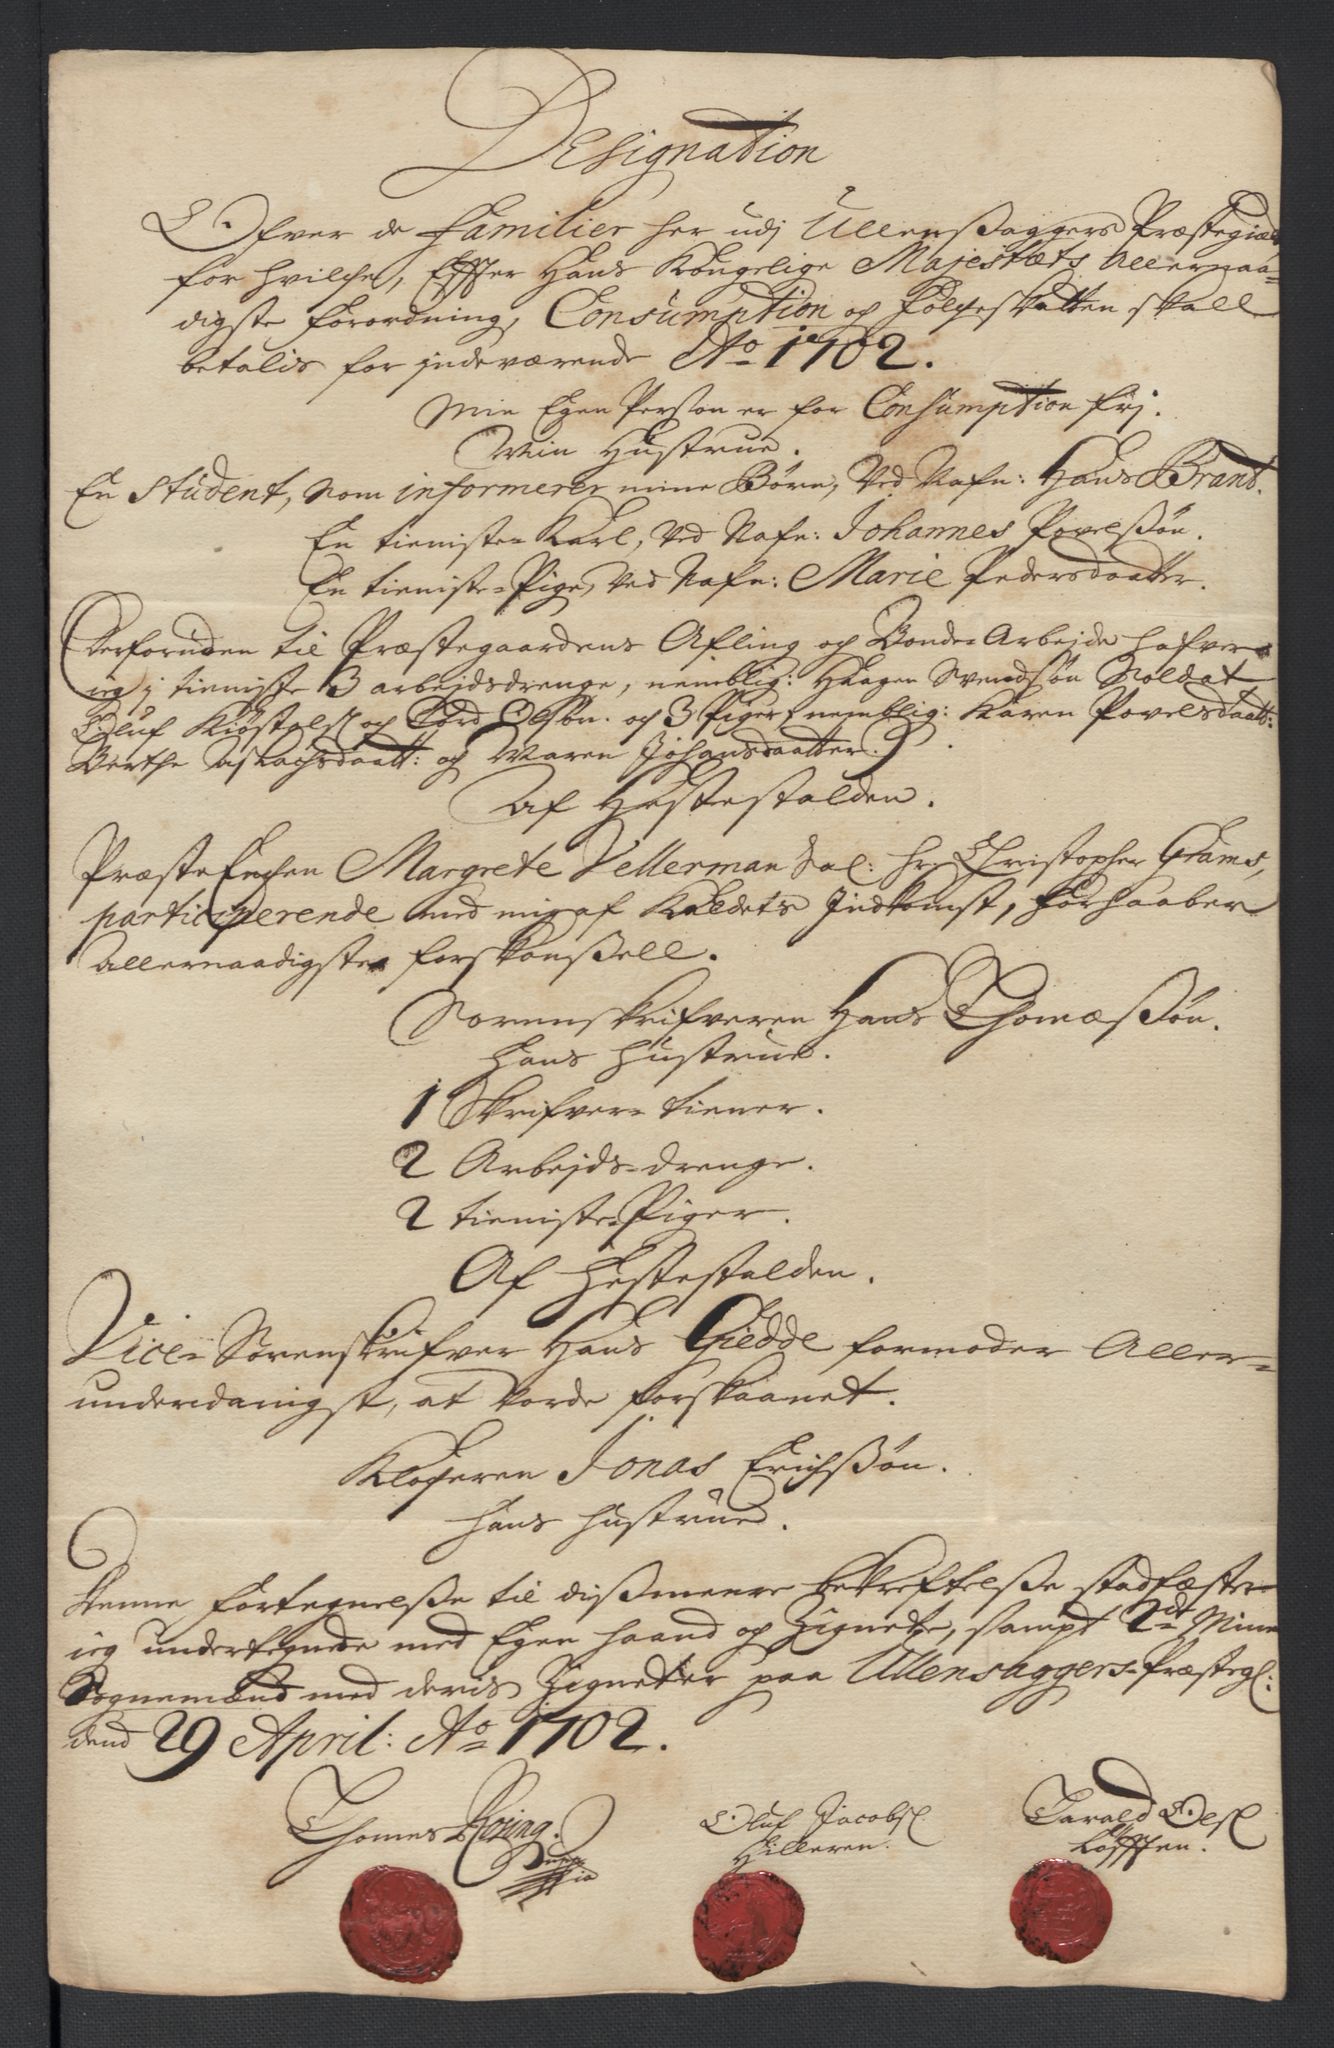 Designation
Ofver de Familier her udj Ullensaggers Præstegiæld
for hvilche, Effter Hans Kongelige Majestæts Allernaa-
digste Forordning, Consumption og Folcheskatten skall
betalis for jndeværende Ao 1702.
Min Egen Person er for Consumption frj.
Min Hustrue.
En Student, som informerer mine Børn, Ved Nafn: Hans Brant.
En tieniste-Karl, Ved Nafn: Johannes Povelsøn.
En tieniste-Pige, Ved Nafn: Marie Pedersdaatter.
(Derforuden til Præstegaardens Afling og Bonde-Arbejde hafver
ieg j tieniste 3 arbejdsdrenge, nemblig: Haagen Svendsøn Soldat
Oluf Kiøstels: og Tord Olsøn. og 3 Piger nemblig: Karen Povelsdaatt:
Berthe Aslachsdaatt: og Maren Johansdaatter.)
Af Hestestalden.
PræsteEnchen Margrete Vellerman Sal: Hr Christopher Grams,
participerende med mig af Kaldets Indkomst, forhaaber
Allernaadigste forskonsell.
Sorenskrifveren Hans Thomæsøn.
Hans Hustrue.
1 Skrifver-tiener.
2 Arbejds-drenge.
2 tieniste-Piger.
Af Hestestalden.
Vice-Sorenskrifver Hans Giedde formoder Aller-
underdanigst, at vorde forskaanet.
Klocheren Jonas Erichsøn.
Hans Hustrue.
Denne Fortegnelse til dismeere bekreftelse stadfæster
ieg undertegnede med Egen haand og Zignete, sampt 2de Mine
Sognemænd med deris Zigneter paa Ullensaggers-Præstegl:
dend 29 April: Ao 1702.
Thomes Rosing.
Oluf Jacobs:
Hilleren.
Tarald Ols:
Løfften.